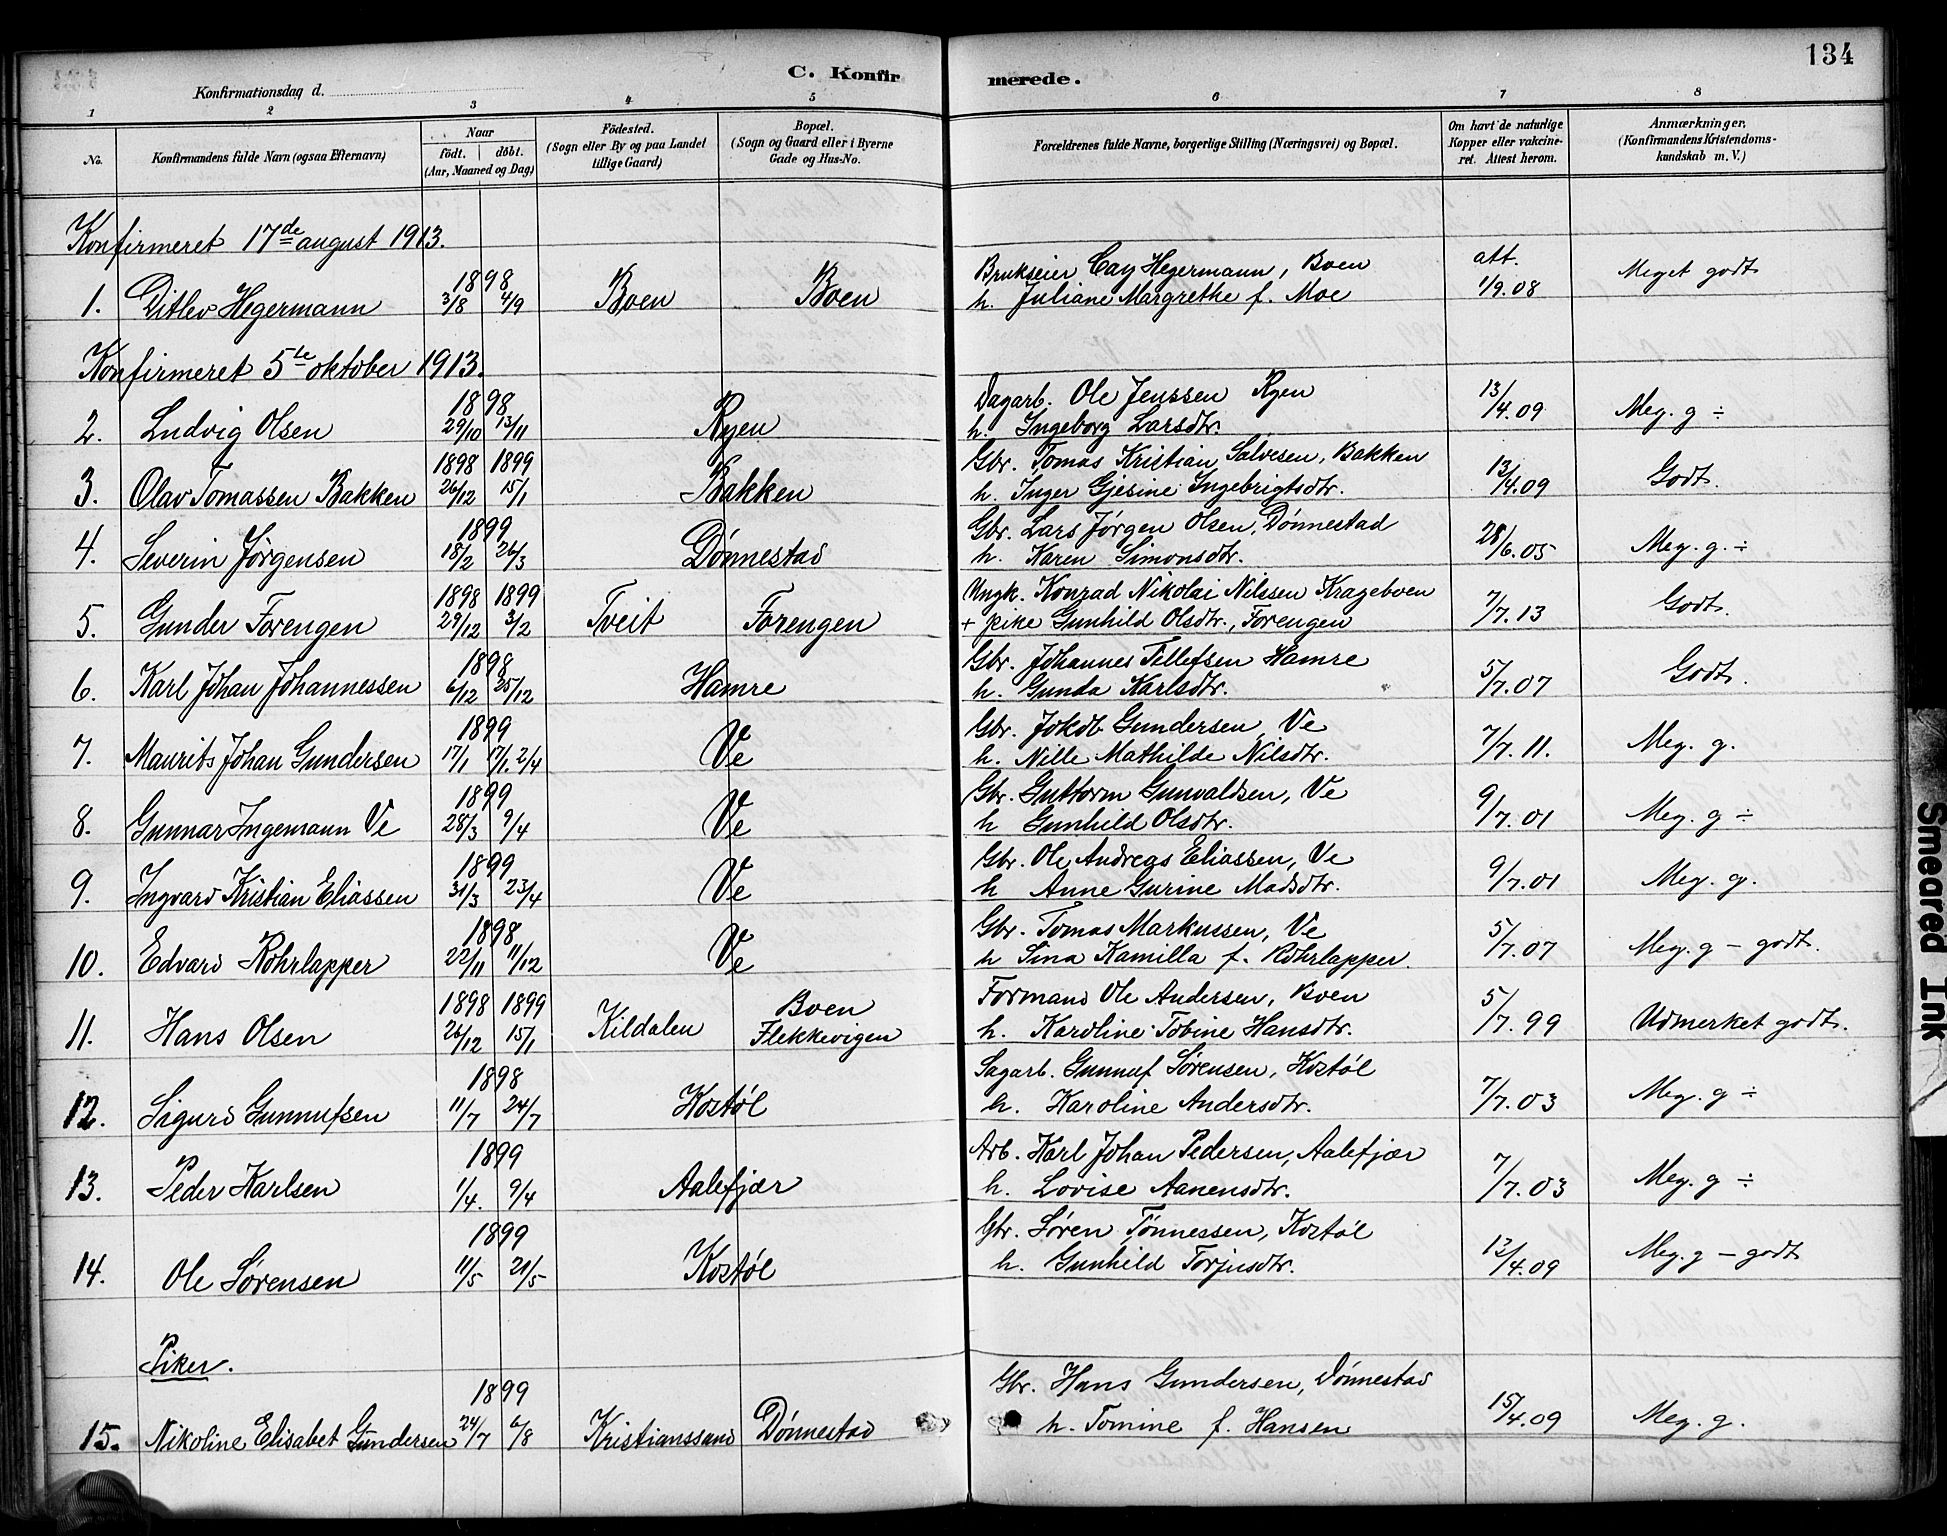 134
C. Konfirmerede.
Konfirmationsdag d.
1 2 3 4 5 6 7 8
No. Konfirmandens fulde Navn (ogsaa Efternavn) Naar født. døbt. (Aar, Maaned og Dag) Födested. (Sogn eller By og paa Landet tillige Gaard) Bopæl. (Sogn og Gaard eller i Byerne Gade og Hus-No. Forældrenes fulde Navne, borgerlige Stilling (Næringsvei) og Bopæl. Om havt de naturlige Kopper eller vakcineret. Attest herom. Anmærkninger, (Konfirmandens Kristendomskundskab m. V.)
Konfirmeret 17de august 1913.
1898 Brukseier Cay Hegermann, Boen att.
1. Ditlev Hegermann 3/8 4/9 Boen Boen h. Juliane Margrethe f. Moe 1/9.08 Meget godt
Konfirmeret 5te oktober 1913.
1898 Dagarb. Ole Jenssen Ryen
2. Ludvig Olsen 29/10 13/11 Ryen h. Ingeborg Larsdtr. 13/14.09 Meg. g ÷
1898 1899 Gbr. Tomas Kristian Salvesen, Bakken
3. Olav Tomassen Bakken 26/12 15/1 Bakken h. Inger Gjesine Ingebrigtsdtr. 13/4.09 Godt.
1899 Gbr. Lars Jørgen Olsen, Dønnestad
4. Severin Jørgensen 18/2 26/3 Dønnestad h. Karen Simonsdtr. 28/6.05 Meg. g. ÷
1898 1899 Ungk. Konrad Nikolai Nilssen Krageboen
5. Gunder Forengen 29/12 3/2 Tveit Forengen + pike Gunhild Olsdtr., Forengen 7/7.13 Godt.
1898 Gbr. Johannes Tellefsen Hamre
6. Karl Johan Johannessen 6/12 25/12 Hamre h. Gunda Karlsdtr. 5/7.07 Godt.
1899 Gbr. Jokob Gundersen, Ve
7. Maurits Johan Gundersen 17/1 17/1. 2/4 Ve h. Nille Mathilde Nilsdtr. 7/7.11. Meg. g.
1899 Gbr. Guttorm Gunvaldsen, Ve
8. Gunnar Ingemann Ve 28/3 9/4 Ve h Gunhild Olsdtr. 9/7.01 Meg. g ÷
1899 Gbr. Ole Andreas Eliassen, Ve
9. Ingvard Kristian Eliassen 31/3 23/4 Ve h Anne Gurine Madsdtr. 9/7.01 Meg. g.
1898 Gbr. Tomas Markussen, Ve
10. Edvard Rohrlapper 22/11 11/12 Ve h Sina Kamilla f. Rohrlapper. 5/7.07 Meg. g – godt.
1898 1899 Boen Formand Ole Andersen, Boen
11. Hans Olsen 26/12 15/1 Kildalen Flekkevigen h. Karoline Tobine Hansdtr. 5/7.99 Udmerket godt.
1898 Sagarb. Gunnuf Sørensen, Kostøl
12. Sigurd Gunnufsen 11/7 24/7 Kostøl h. Karoline Andersdtr. 7/7.03 Meg. g ÷
1899 Arb. Karl Johan Pedersen, Aalefjær
13. Peder Karlsen 1/4. 9/4 Aalefjær h. Lovise Aanensdtr. 7/7.03 Meg. g ÷
1899 Gbr. Søren Tønnessen, Kostøl
14. Ole Sørensen 11/5 21/5 Kostøl h. Gunhild Torjusdtr. 13/4.09 Meg. g – godt
Piker.
1899 Gbr. Hans Gundersen, Dønnestad
15. Nikoline Elisabet Gundersen 24/7 6/8 Kristianssand Dønnestad h. Tomine f. Hansen 15/4.09 Meg. g.
Smeared Ink